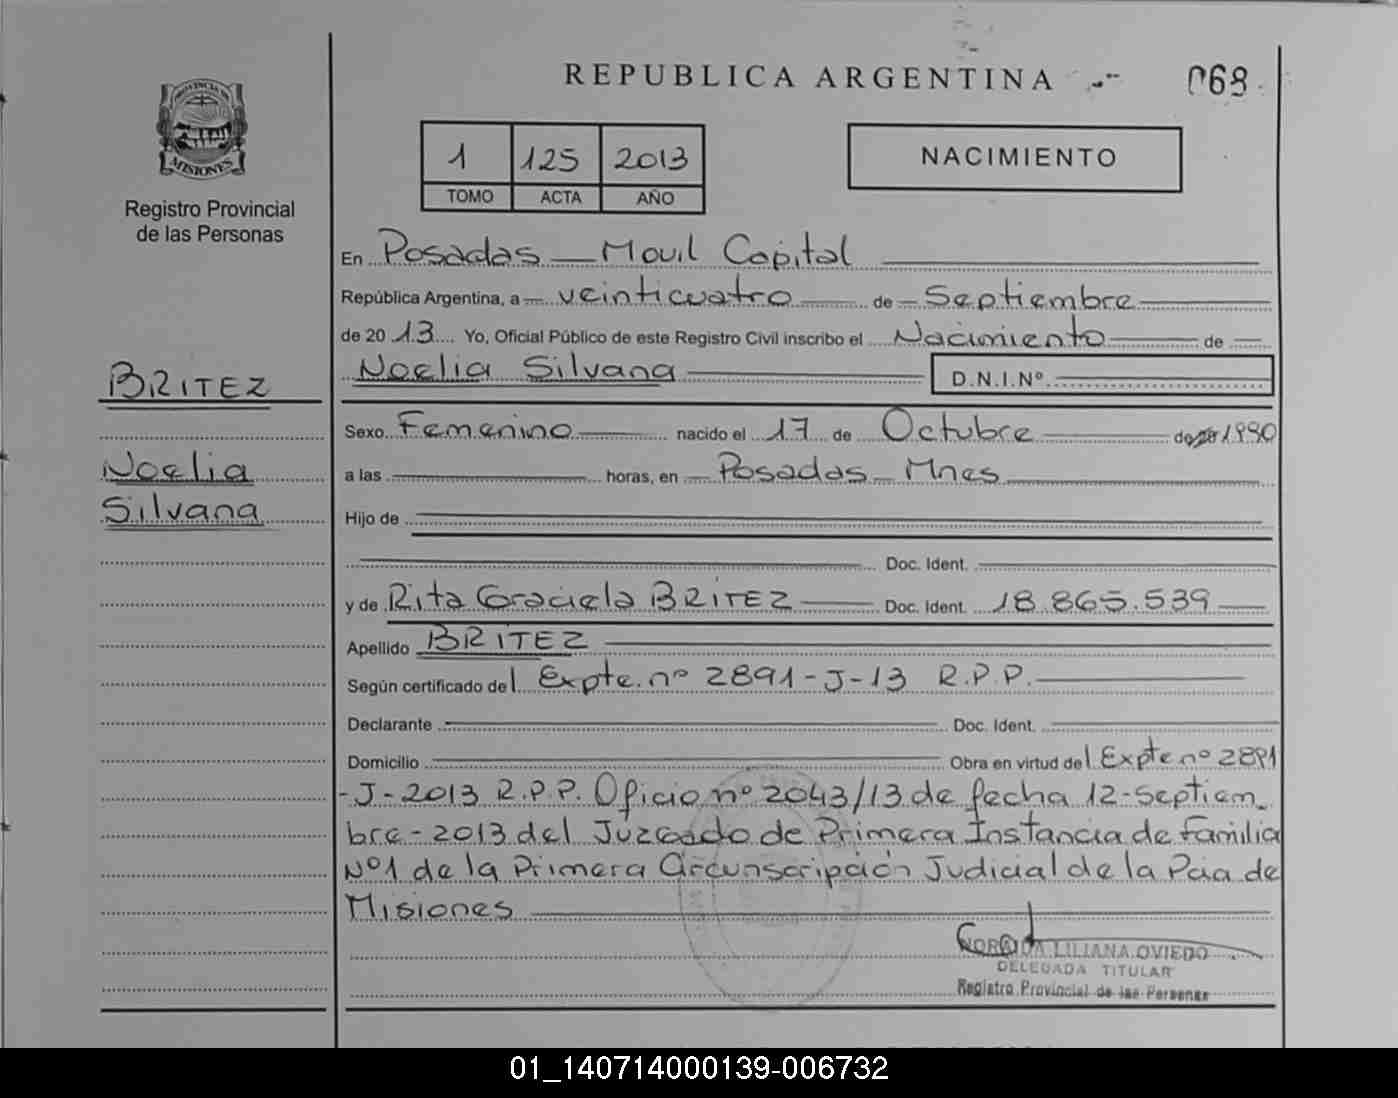 REPUBLICA ARGENTINA
068
PROVINCIA DE
MISIONES
Registro Provincial
de las Personas
1 125 2013
TOMO ACTA AÑO
NACIMIENTO
En Posadas Movil Capital
República Argentina, a veinticuatro de Septiembre
de 2013 Yo, Oficial Público de este Registro Civil inscribo el Nacimiento de
Noelia Silvana D.N.I.Nº
BRITEZ
Noelia
Silvana
Sexo Femenino nacido el 17 de Octubre de 1990
a las horas, en Posadas Mnes
Hijo de
Doc. Ident.
y de Rita Graciela BRITEZ Doc. Ident. 18.865.539
Apellido BRITEZ
Según certificado del Expte. nº 2891-J-13 R.P.P.
Declarante Doc. Ident.
Domicilio Obra en virtud del Expte nº 2891
-J-2013 R.P.P. Oficio nº 2043/13 de fecha 12-Septiem
bre-2013 del Juzgado de Primera Instancia de Familia
Nº1 de la Primera Circunscripción Judicial de la Pcia de
Misiones
LILIANA OVIEDO
DELEGADA TITULAR
Registro Provincial de las Personas
01_140714000139-006732